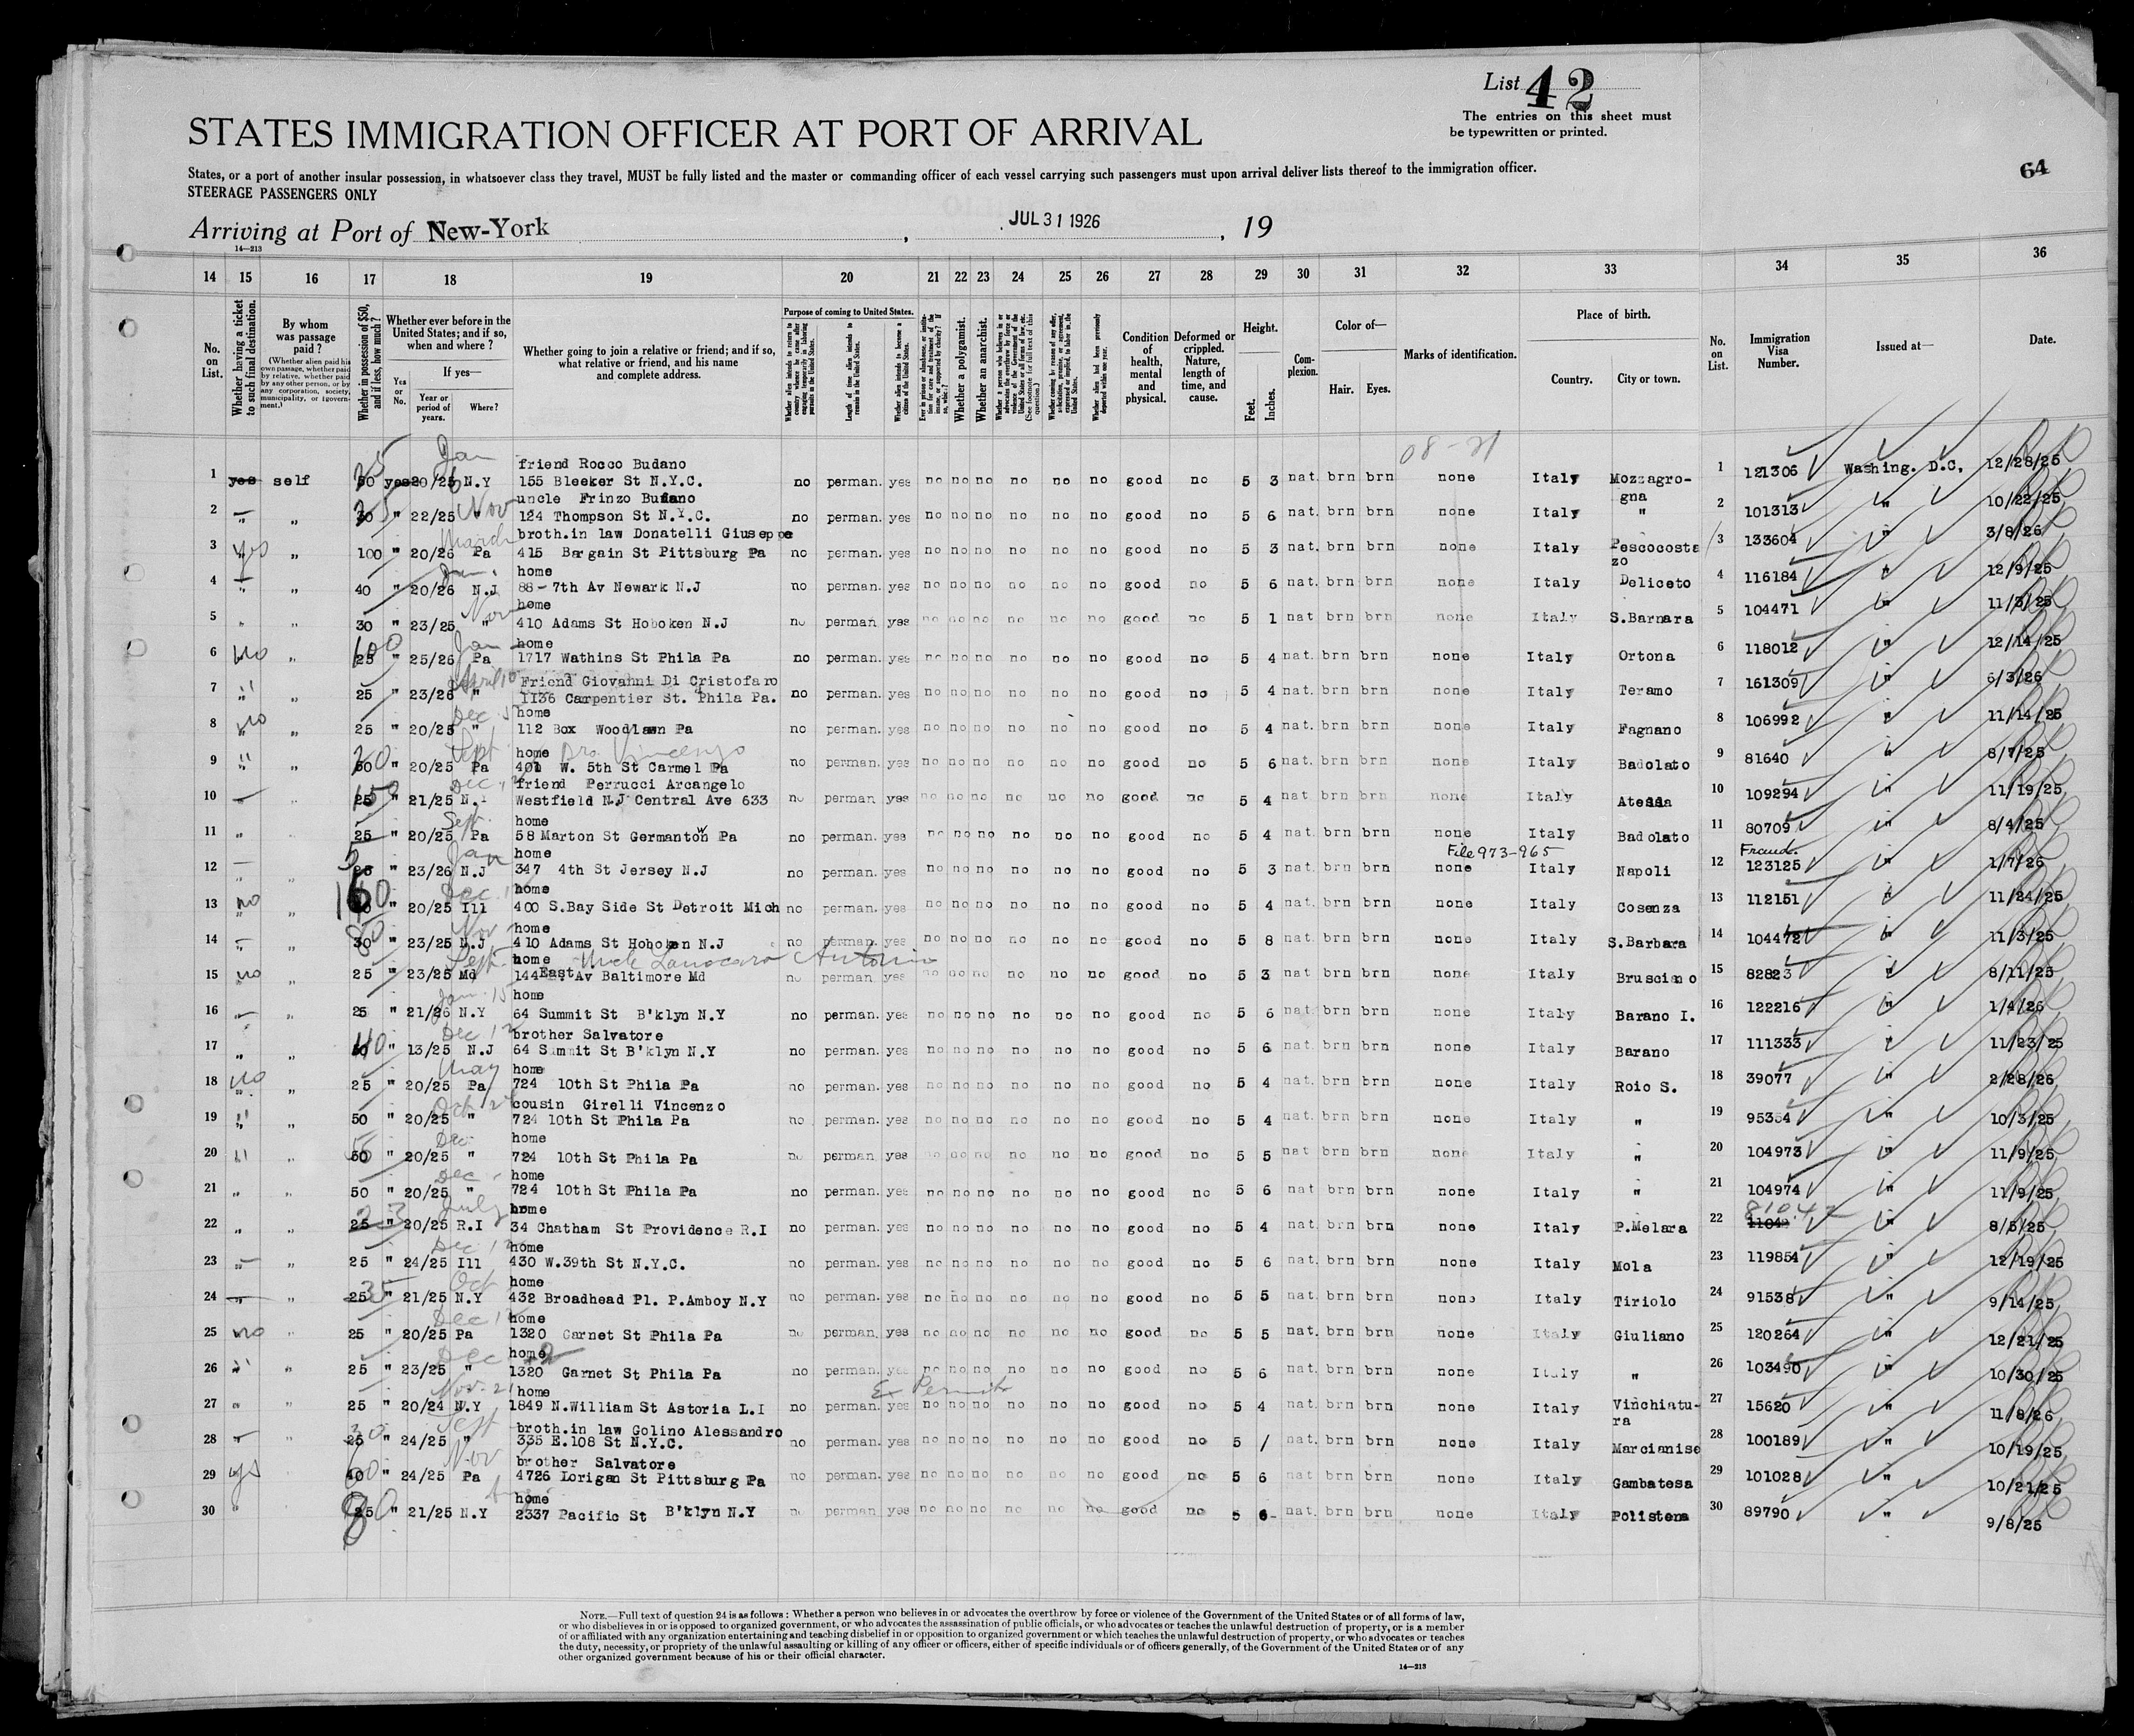 List 42
The entries on this sheet must
be typewritten or printed.
STATES IMMIGRATION OFFICER AT PORT OF ARRIVAL
64
States, or a port of another insular possession, in whatsoever class they travel, MUST be fully listed and the master or commanding officer of each vessel carrying such passengers must upon arrival deliver lists thereof to the immigration officer.
STEERAGE PASSENGERS ONLY
Arriving at Port of New-York , JUL 31 1926 , 19
14—213
14 15 16 17 18 19 20 21 22 23 24 25 26 27 28 29 30 31 32 33 34 35 36
No. on List.
Whether having a ticket to such final destination.
By whom was passage paid?
(Whether alien paid his own passage, whether paid by relative, whether paid by any other person, or by any corporation, society, municipality, or government.)
Whether in possession of $50, and if less, how much?
Whether ever before in the United States; and if so, when and where?
Yes or No.
If yes—
Year or period of years.
Where?
Whether going to join a relative or friend; and if so, what relative or friend, and his name and complete address.
Purpose of coming to United States.
Whether alien intends to return to country whence he came after engaging temporarily in laboring pursuits in the United States.
Length of time alien intends to remain in the United States.
Whether alien intends to become a citizen of the United States.
Whether a polygamist.
Whether an anarchist.
Condition of health, mental and physical.
Deformed or crippled. Nature, length of time, and cause.
Height.
Feet. Inches.
Complexion.
Color of—
Hair. Eyes.
Marks of identification.
Place of birth.
Country. City or town.
No. on List.
Immigration Visa Number.
Issued at—
Date.
08-21
Jan
friend Rocco Budano
1 yes self 50 yes 20/25 N.Y 155 Bleeker St N.Y.C. no perman. yes no no no no no no good no 5 3 nat. brn brn none Italy Mozzagrogna 1 121306 Washing. D.C. 12/28/25
Nov
uncle Frinzo Budano
2 " " 30 " 22/25 " 124 Thompson St N.Y.C. no perman. yes no no no no no no good no 5 6 nat. brn brn none Italy " 2 101313 " 10/22/25
March
broth.in law Donatelli Giuseppe
3 yes " 100 " 20/26 Pa 415 Bargain St Pittsburg Pa no perman. yes no no no no no no good no 5 3 nat. brn brn none Italy Pescocostazo 3 133604 " 3/8/26
Jan.
home
4 " " 40 " 20/26 N.J 88-7th Av Newark N.J no perman. yes no no no no no no good no 5 6 nat. brn brn none Italy Deliceto 4 116184 " 12/9/25
Nov
home
5 " " 30 " 23/25 " 410 Adams St Hoboken N.J no perman yes no no no no no no good no 5 1 nat brn brn none Italy S.Barnara 5 104471 " 11/3/25
100 Jan
home
6 No " 25 " 25/26 Pa 1717 Wathins St Phila Pa no perman. yes no no no no no no good no 5 4 nat. brn brn none Italy Ortona 6 118012 " 12/14/25
April 10
Friend Giovanni Di Cristofaro
7 " " 25 " 23/26 " 1136 Carpentier St. Phila Pa. no perman. yes no no no no no no good no 5 4 nat. brn brn none Italy Teramo 7 161309 " 6/3/26
Dec
home
8 no " 25 " 20/25 " 112 Box Woodlawn Pa no perman. yes no no no no no no good no 5 4 nat. brn brn none Italy Fagnano 8 106992 " 11/14/25
Sept
home Bro. Vincenzo
9 " " 50 " 20/25 Pa 401 W. 5th St Carmel Pa no perman. yes no no no no no no good no 5 6 nat. brn brn none Italy Badolato 9 81640 8/7/25
Dec
friend Perrucci Arcangelo
10 " 25 " 21/25 N.Y Westfield N.J Central Ave 633 no perman yes no no no no no no good no 5 4 nat brn brn none Italy Atessa 10 109294 " 11/19/25
Sept.
home
11 " 25 " 20/25 Pa 58 Marton St Germantown Pa no perman. yes no no no no no no good no 5 4 nat. brn brn none Italy Badolato 11 80709 " 8/4/25
Jan
home
File 973-965
Fraud.
12 " " 25 " 23/26 N.J 347 4th St Jersey N.J no perman. yes no no no no no no good no 5 3 nat. brn brn none Italy Napoli 12 123125 1/7/26
Dec.
home
13 no " " 20/25 Ill 400 S.Bay Side St Detroit Mich no perman. yes no no no no no no good no 5 4 nat. brn brn none Italy Cosenza 13 112151 " 11/24/25
Nov
home
14 " " 30 " 23/25 N.J 410 Adams St Hoboken N.J no perman. yes no no no no no no good no 5 8 nat. brn brn none Italy S.Barbara 14 104472 " 11/3/25
Sept.
home Uncle Lanocara Antonio
15 no " 25 " 23/25 Md 144 East Av Baltimore Md no perman yes no no no no no no good no 5 3 nat brn brn none Italy Brusciano 15 82823 " 8/11/25
Jan. 15
home
16 " " 25 " 21/26 N.Y 64 Summit St B'klyn N.Y no perman. yes no no no no no no good no 5 6 nat. brn brn none Italy Barano I. 16 122216 " 1/4/26
Dec 12
brother Salvatore
17 " " 40 " 13/25 N.J 64 Summit St B'klyn N.Y no perman. yes no no no no no no good no 5 6 nat. brn brn none Italy Barano 17 111333 " 11/23/25
May
home
18 No " 25 " 20/25 Pa 724 10th St Phila Pa no perman. yes no no no no no no good no 5 4 nat. brn brn none Italy Roio S. 18 39077 " 2/28/26
Oct 24
cousin Girelli Vincenzo
19 " " 50 " 20/25 " 724 10th St Phila Pa no perman. yes no no no no no no good no 5 4 nat. brn brn none Italy " 19 95354 " 10/3/25
Dec
home
20 " " 50 " 20/25 " 724 10th St Phila Pa no perman yes no no no no no no good no 5 5 nat brn brn none Italy " 20 104973 " 11/9/25
Dec
home
21 " " 50 " 20/25 " 724 10th St Phila Pa no perman. yes no no no no no no good no 5 6 nat brn brn none Italy " 21 104974 " 11/9/25
July
home
81042
22 " " 25 " 20/25 R.I 34 Chatham St Providence R.I no perman. yes no no no no no no good no 5 4 nat. brn brn none Italy P.Melara 22 11042 " 8/5/25
Dec 12
home
23 " " 25 " 24/25 Ill 430 W.39th St N.Y.C. no perman. yes no no no no no no good no 5 6 nat. brn brn none Italy Mola 23 119854 " 12/19/25
35 Oct
home
24 " " 25 " 21/25 N.Y 432 Broadhead Pl. P.Amboy N.Y no perman. yes no no no no no no good no 5 5 nat. brn brn none Italy Tiriolo 24 91538 " 9/14/25
Dec 12
home
25 no " 25 " 20/25 Pa 1320 Garnet St Phila Pa no perman. yes no no no no no no good no 5 5 nat. brn brn none Italy Giuliano 25 120264 " 12/21/25
Dec
home
26 " " 25 " 23/25 " 1320 Garnet St Phila Pa no perman. yes no no no no no no good no 5 6 nat. brn brn none Italy " 26 103490 " 10/30/25
Nov. 21
home Ex Permit
27 " " 25 " 20/24 N.Y 1849 N.William St Astoria L.I no perman. yes no no no no no no good no 5 4 nat. brn brn none Italy Vinchiatura 27 15620 " 11/8/26
30 Sept
broth.in law Golino Alessandro
28 " 25 " 24/25 " 335 E.108 St N.Y.C. no perman. yes no no no no no no good no 5 / nat. brn brn none Italy Marcianise 28 100189 " 10/19/25
Nov
brother Salvatore
29 yes " 24/25 Pa 4726 Lorigan St Pittsburg Pa no perman. yes no no no no no no good no 5 6 nat brn brn none Italy Gambatesa 29 101028 " 10/21/25
home
30 " 80 25 " 21/25 N.Y 2337 Pacific St B'klyn N.Y no perman yes no no no no no no good no 5 6 nat. brn brn none Italy Polistena 30 89790 " 9/8/25
NOTE.—Full text of question 24 is as follows: Whether a person who believes in or advocates the overthrow by force or violence of the Government of the United States or of all forms of law,
or who disbelieves in or is opposed to organized government, or who advocates the assassination of public officials, or who advocates or teaches the unlawful destruction of property, or is a member
of or affiliated with any organization entertaining and teaching disbelief in or opposition to organized government or which teaches the unlawful destruction of property, or who advocates or teaches
the duty, necessity, or propriety of the unlawful assaulting or killing of any officer or officers, either of specific individuals or of officers generally, of the Government of the United States or of any
other organized government because of his or their official character.
14—213